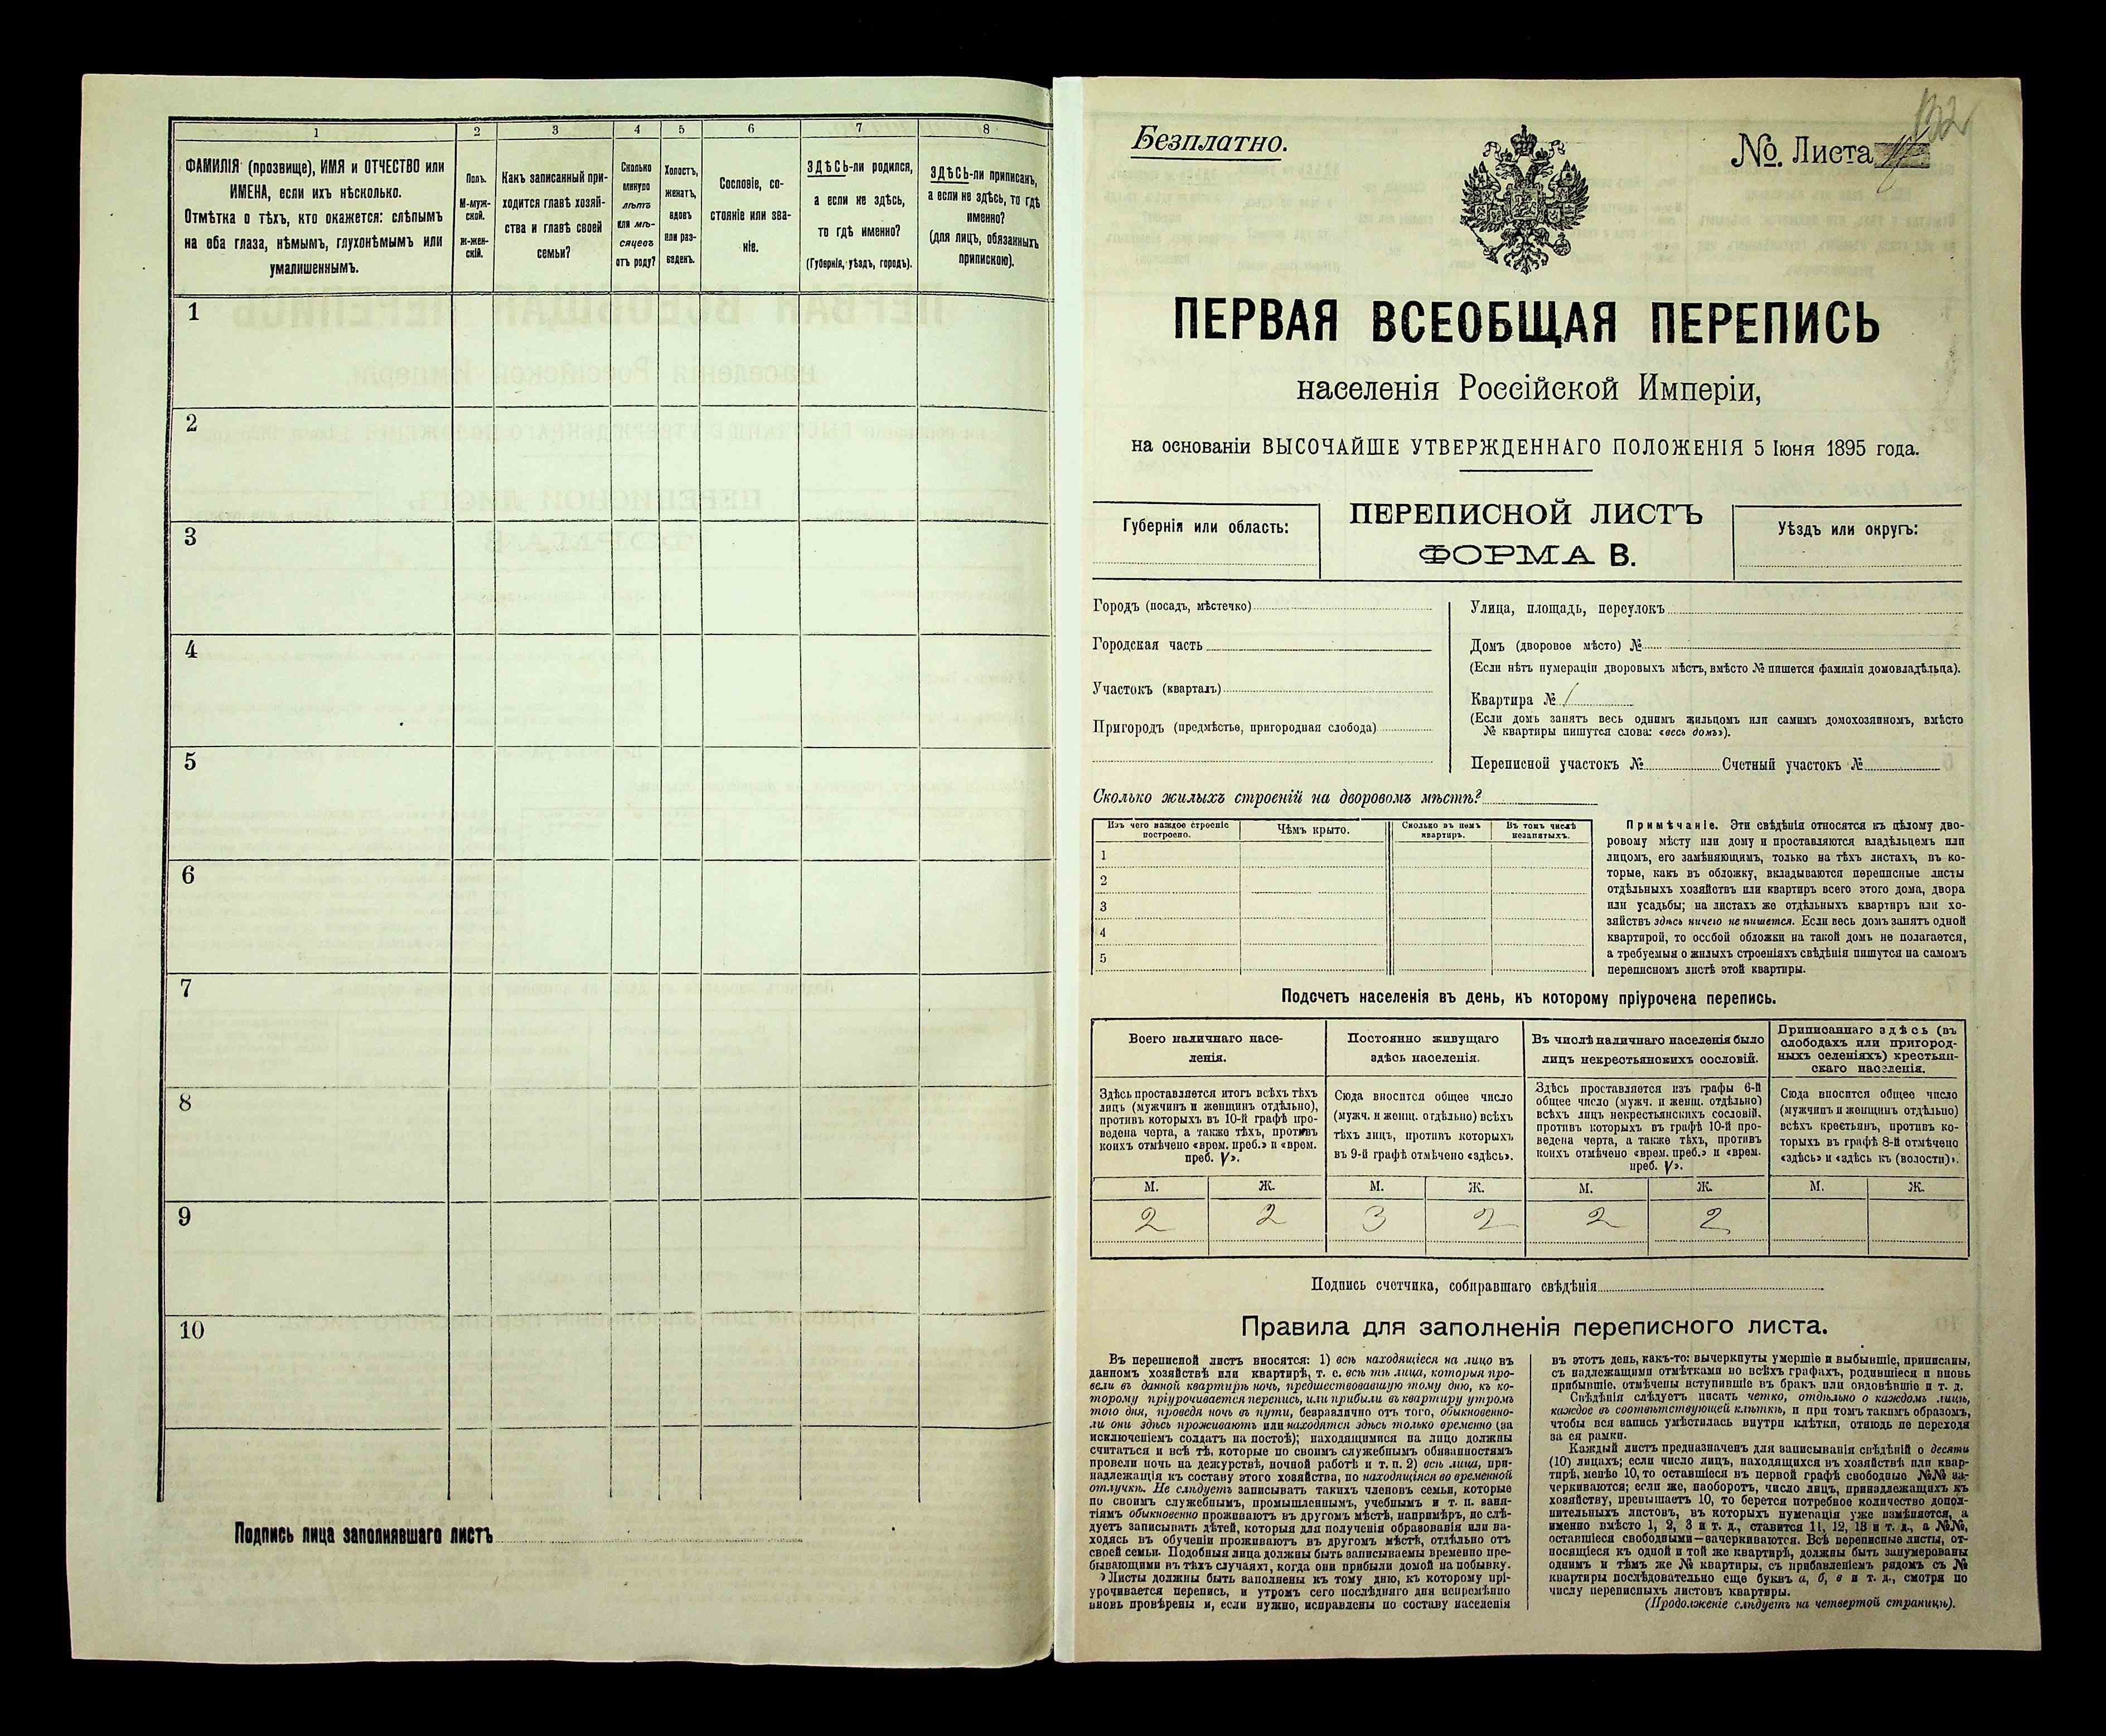 1
2
3
4
5
6
7
8
ФАМИЛІЯ (прозвище), ИМЯ и ОТЧЕСТВО или
ИМЕНА, если ихъ нѣсколько.
Отмѣтка о тѣхъ, кто окажется: слѣпымъ
на оба глаза, нѣмымъ, глухонѣмымъ или
умалишеннымъ.
Полъ.
М-муж-
ской.
Ж-жен-
скій.
Какъ записанный при-
ходится главѣ хозяй-
ства и главѣ своей
семьи?
Сколько
минуло
лѣтъ
или мѣ-
сяцевъ
отъ роду?
Холостъ,
женатъ,
вдовъ
или раз-
веденъ.
Сословіе, со-
стояніе или зва-
ніе.
ЗДѢСЬ-ли родился,
а если не здѣсь,
то гдѣ именно?
(Губернія, уѣздъ, городъ).
ЗДѢСЬ-ли приписанъ,
а если не здѣсь, то гдѣ
именно?
(для лицъ, обязанныхъ
припискою).
1
2
3
4
5
6
7
8
9
10
Подпись лица заполнявшаго листъ
Безплатно.
№. Листа
132
ПЕРВАЯ ВСЕОБЩАЯ ПЕРЕПИСЬ
населенія Россійской Имперіи,
на основаніи ВЫСОЧАЙШЕ УТВЕРЖДЕННАГО ПОЛОЖЕНІЯ 5 Іюня 1895 года.
Губернія или область:
ПЕРЕПИСНОЙ ЛИСТЪ
ФОРМА В.
Уѣздъ или округъ:
Городъ (посадъ, мѣстечко)
Городская часть
Участокъ (кварталъ)
Пригородъ (предмѣстье, пригородная слобода)
Улица, площадь, переулокъ
Домъ (дворовое мѣсто) №
(Если нѣтъ нумераціи дворовыхъ мѣстъ, вмѣсто № пишется фамилія домовладѣльца).
Квартира № 1
(Если домъ занятъ весь однимъ жильцомъ или самимъ домохозяиномъ, вмѣсто
№ квартиры пишутся слова: «весь домъ»).
Переписной участокъ № Счетный участокъ №
Сколько жилыхъ строеній на дворовомъ мѣстѣ?
Изъ чего каждое строеніе
построено.
Чѣмъ крыто.
Сколько въ немъ
квартиръ.
Въ томъ числѣ
незанятыхъ.
1
2
3
4
5
Примѣчаніе. Эти свѣдѣнія относятся къ цѣлому дво-
ровому мѣсту или дому и проставляются владѣльцемъ или
лицомъ, его замѣняющимъ, только на тѣхъ листахъ, въ ко-
торые, какъ въ обложку, вкладываются переписные листы
отдѣльныхъ хозяйствъ или квартиръ всего этого дома, двора
или усадьбы; на листахъ же отдѣльныхъ квартиръ или хо-
зяйствъ здѣсь ничего не пишется. Если весь домъ занятъ одной
квартирой, то особой обложки на такой домъ не полагается,
а требуемыя о жилыхъ строеніяхъ свѣдѣнія пишутся на самомъ
переписномъ листѣ этой квартиры.
Подсчетъ населенія въ день, къ которому пріурочена перепись.
Всего наличнаго насе-
ленія.
Постоянно живущаго
здѣсь населенія.
Въ числѣ наличнаго населенія было
лицъ некрестьянскихъ сословій.
Приписаннаго здѣсь (въ
слободахъ или пригород-
ныхъ селеніяхъ) крестьян-
скаго населенія.
Здѣсь проставляется итогъ всѣхъ тѣхъ
лицъ (мужчинъ и женщинъ отдѣльно),
противъ которыхъ въ 10-й графѣ про-
ведена черта, а также тѣхъ, противъ
коихъ отмѣчено «врем. преб.» и «врем.
преб. V».
Сюда вносится общее число
(мужч. и женщ. отдѣльно) всѣхъ
тѣхъ лицъ, противъ которыхъ
въ 9-й графѣ отмѣчено «здѣсь».
Здѣсь проставляется изъ графы 6-й
общее число (мужч. и женщ. отдѣльно)
всѣхъ лицъ некрестьянскихъ сословій,
противъ которыхъ въ графѣ 10-й про-
ведена черта, а также тѣхъ, противъ
коихъ отмѣчено «врем. преб.» и «врем.
преб. V».
Сюда вносится общее число
(мужчинъ и женщинъ отдѣльно)
всѣхъ крестьянъ, противъ ко-
торыхъ въ графѣ 8-й отмѣчено
«здѣсь» и «здѣсь къ (волости)».
М. Ж. М. Ж. М. Ж. М. Ж.
2 2 3 2 2 2
Подпись счетчика, собиравшаго свѣдѣнія
Правила для заполненія переписного листа.
Въ переписной листъ вносятся: 1) всѣ находящіеся на лицо въ
данномъ хозяйствѣ или квартирѣ, т. е. всѣ тѣ лица, которыя про-
вели въ данной квартирѣ ночь, предшествовавшую тому дню, къ ко-
торому пріурочивается перепись, или прибыли въ квартиру утромъ
того дня, проведя ночь въ пути, безразлично отъ того, обыкновенно-
ли они здѣсь проживаютъ или находятся здѣсь только временно (за
исключеніемъ солдатъ на постоѣ); находящимися на лицо должны
считаться и всѣ тѣ, которые по своимъ служебнымъ обязанностямъ
провели ночь на дежурствѣ, ночной работѣ и т. п. 2) всѣ лица, при-
надлежащія къ составу этого хозяйства, но находящіяся во временной
отлучкѣ. Не слѣдуетъ записывать такихъ членовъ семьи, которые
по своимъ служебнымъ, промышленнымъ, учебнымъ и т. п. заня-
тіямъ обыкновенно проживаютъ въ другомъ мѣстѣ, напримѣръ, не слѣ-
дуетъ записывать дѣтей, которыя для полученія образованія или на-
ходясь въ обученіи проживаютъ въ другомъ мѣстѣ, отдѣльно отъ
своей семьи. Подобныя лица должны быть записываемы временно пре-
бывающими въ тѣхъ случаяхъ, когда они прибыли домой на побывку.
Листы должны быть заполнены къ тому дню, къ которому прі-
урочивается перепись, и утромъ сего послѣдняго дня непремѣнно
вновь провѣрены и, если нужно, исправлены по составу населенія
въ этотъ день, какъ-то: вычеркнуты умершіе и выбывшіе, приписаны,
съ надлежащими отмѣтками во всѣхъ графахъ, родившіеся и вновь
прибывшіе, отмѣчены вступившіе въ бракъ или овдовѣвшіе и т. д.
Свѣдѣнія слѣдуетъ писать четко, отдѣльно о каждомъ лицѣ,
каждое въ соотвѣтствующей клѣткѣ, и при томъ такимъ образомъ,
чтобы вся запись умѣстилась внутри клѣтки, отнюдь не переходя
за ея рамки.
Каждый листъ предназначенъ для записыванія свѣдѣній о десяти
(10) лицахъ; если число лицъ, находящихся въ хозяйствѣ или квар-
тирѣ, менѣе 10, то оставшіеся въ первой графѣ свободные №№ за-
черкиваются; если же, наоборотъ, число лицъ, принадлежащихъ къ
хозяйству, превышаетъ 10, то берется потребное количество допол-
нительныхъ листовъ, въ которыхъ нумерація уже измѣняется, а
именно вмѣсто 1, 2, 3 и т. д., ставится 11, 12, 13 и т. д., а №№,
оставшіеся свободными—зачеркиваются. Всѣ переписные листы, от-
носящіеся къ одной и той же квартирѣ, должны быть занумерованы
однимъ и тѣмъ же № квартиры, съ прибавленіемъ рядомъ съ №
квартиры послѣдовательно еще буквъ а, б, в и т. д., смотря по
числу переписныхъ листовъ квартиры.
(Продолженіе слѣдуетъ на четвертой страницѣ).